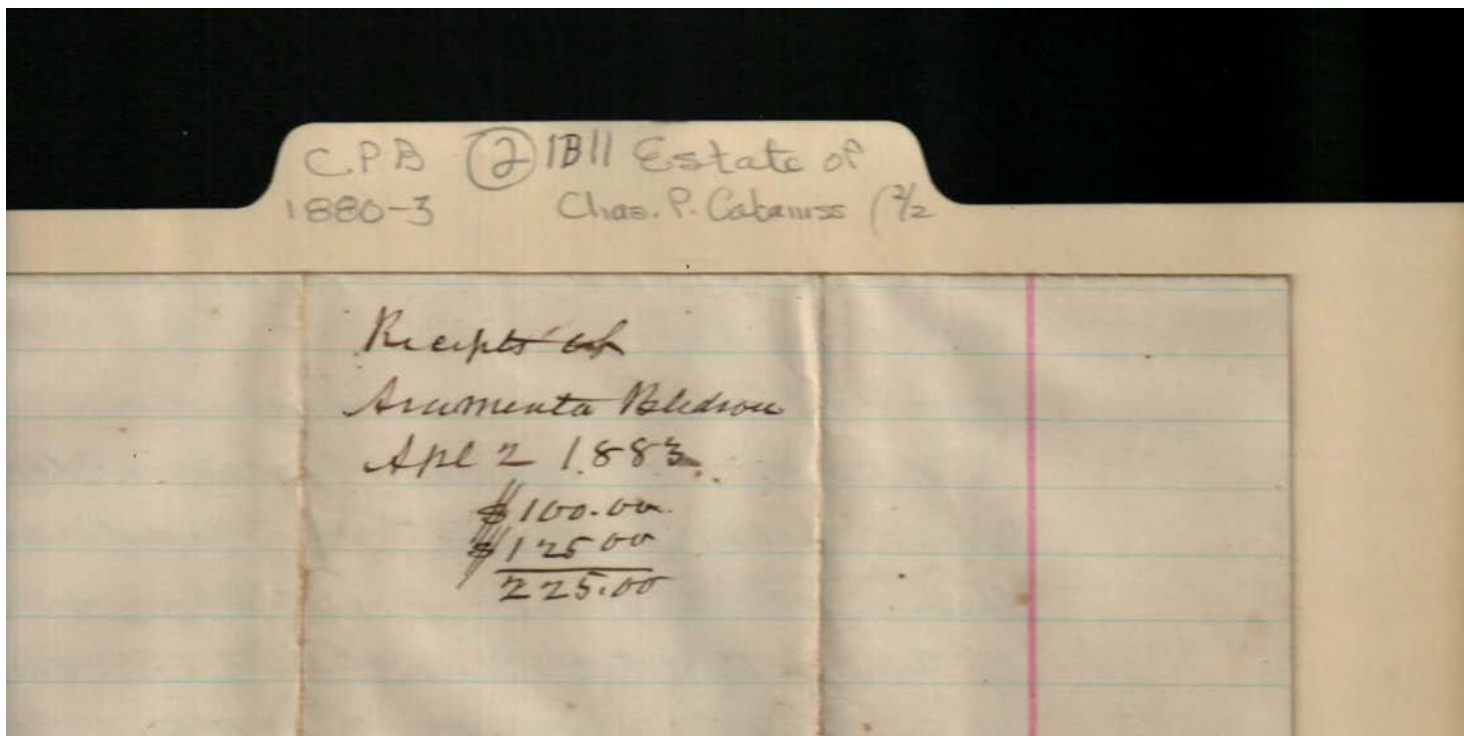 CPB ② 1B11 Estate of
1880-3 Chas. P. Cabaniss (2/2
Receipts of
Bledsoe
Apl 2 1883
$100.00
$125 00
225.00